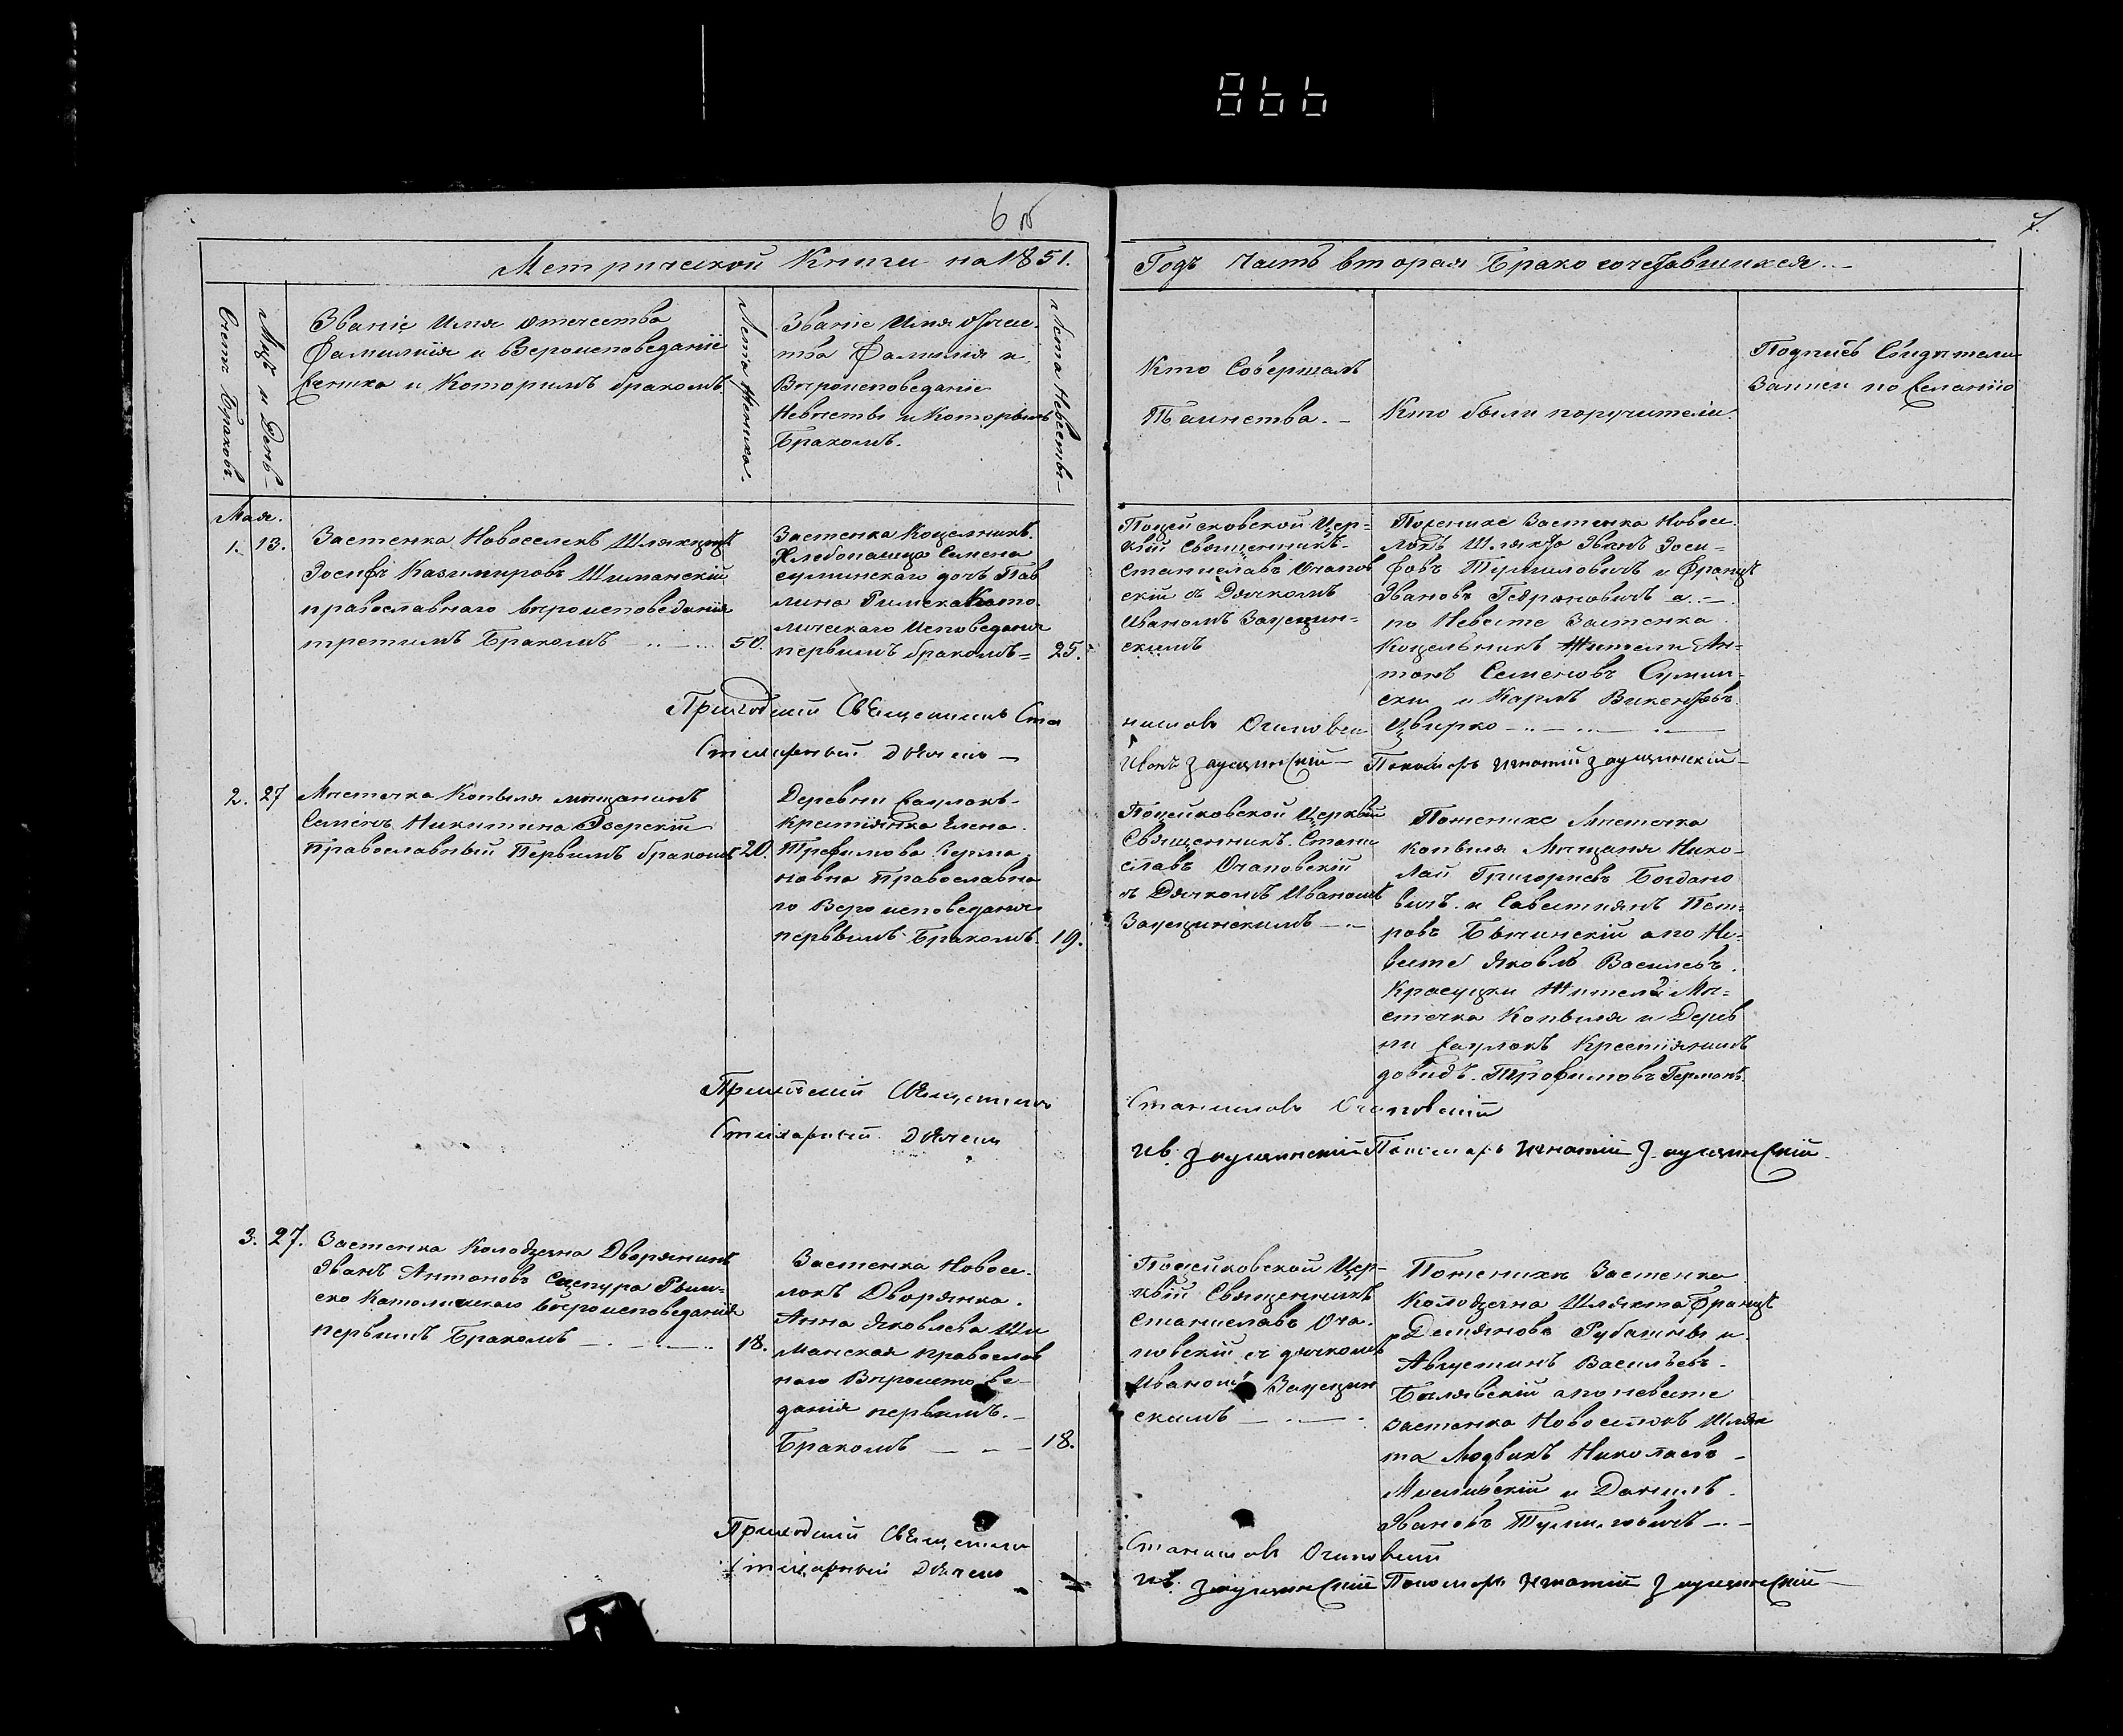 866
6
7.
Метрической Книги на 1851.
Годъ Часть вторая Бракосочетавшихся.
Счетъ Браковъ.
Мцъ и День
Званіе Имя Отечества
Фамилія и Вероисповеданіе
Жениха и Которимъ бракомъ
Лета Жениха.
Званіе Имя Отчес
тва Фамилія и
Вероисповеданіе
Невесты и Которымъ
Бракомъ.
Лета Невесты
Кто Совершалъ
Таинства.
Кто были поручители.
Подписъ Свидетели
Записи по Желанію
Мая.
1. 13.
Застенка Новоселекъ Шляхтичъ
Іосифъ Казимировъ Шиманскій
православнаго вероисповеданія
третимъ Бракомъ 50.
Застенка Коцельникъ.
Хлебопашца Семена
Сулминскаго дочъ Пав
лина Римскакато
лическаго Исповеданія
первимъ бракомъ= 25.
Поцейковской Цер=
квій Священникъ
Станиславъ Очапов
скій съ Дячкомъ
Иваномъ Заусцин=
скимъ
Поженихе Застенка Новосе
локъ Шляхта Іванъ Іоси=
фовъ Турмиловичъ и Францъ
Івановъ Гедрановичъ а
по Невесте Застенка
Коцельникъ Жители Ан=
тонъ Семеновъ Сулмин
ски и Карлъ Викентіевъ
Цвирко
Приходскій Священникъ Ста
ниславъ Очаповски
Стихарный Дьячекъ
Иванъ Заусцинскій Пономарь Игнатій Заусцинскій
2. 27
Местечка Копыля мещанинъ
Семенъ Никитина Озерскій
Православный Первимъ бракомъ 20.
Деревни Саулокъ
Крестіянка Елена
Трофимова Герма
новна Православна
го Вероисповеданія
первымъ Бракомъ. 19.
Поцейковской Церквій
Священникъ Стани
славъ Очаповскій
съ Дячкомъ Иваномъ
Заусцинскимъ
Поженихе Местечка
Копыля Мещаня Нико=
лай Григориевъ Богдано
вичъ и Савастиянъ Пет=
ровъ Бычинскій а по Не=
весте Яковлъ Василевъ
Красуцки Жители Ме=
стечка Копыля и Дерев
ни Саулокъ Крестіянинъ
довидъ Трофимовъ Германъ.
Приходскій Священникъ
Станиславъ Очаповскій
Стихарный Дьячекъ
Ив. Заусцинскій Пономарь Игнатій Заусцинскій
3. 27.
Застенка Колодзезна Дворянинъ
Іванъ Антоновъ Сцепура Рим=
ско Католическаго Вероисповеданія
первимъ Бракомъ 18.
Застенка Новосе
локъ Дворянка.
Анна Яковлева Ши
манская Православ
наго Вероиспове
данія первымъ.
Бракомъ 18.
Поцейковской Цер
квій Священникъ
Станиславъ Оча.
повскій съ дячкомъ
Иваномъ Заусцин
скимъ
Поженихе Застенка
Колодзезна Шляхта Францъ
Демянова и
Августинъ Васильевъ
Билявскій а по невесте
Застенка Новоселокъ Шлях
та Людвикъ Николаевъ
Мисливскій и Данилъ
Івановъ Турмиловичъ
Приходскій Священникъ
Станиславъ Очаповскій
Стихарный Дьячекъ
Ив. Заусцинскій Пономарь Игнатій Заусцинскій